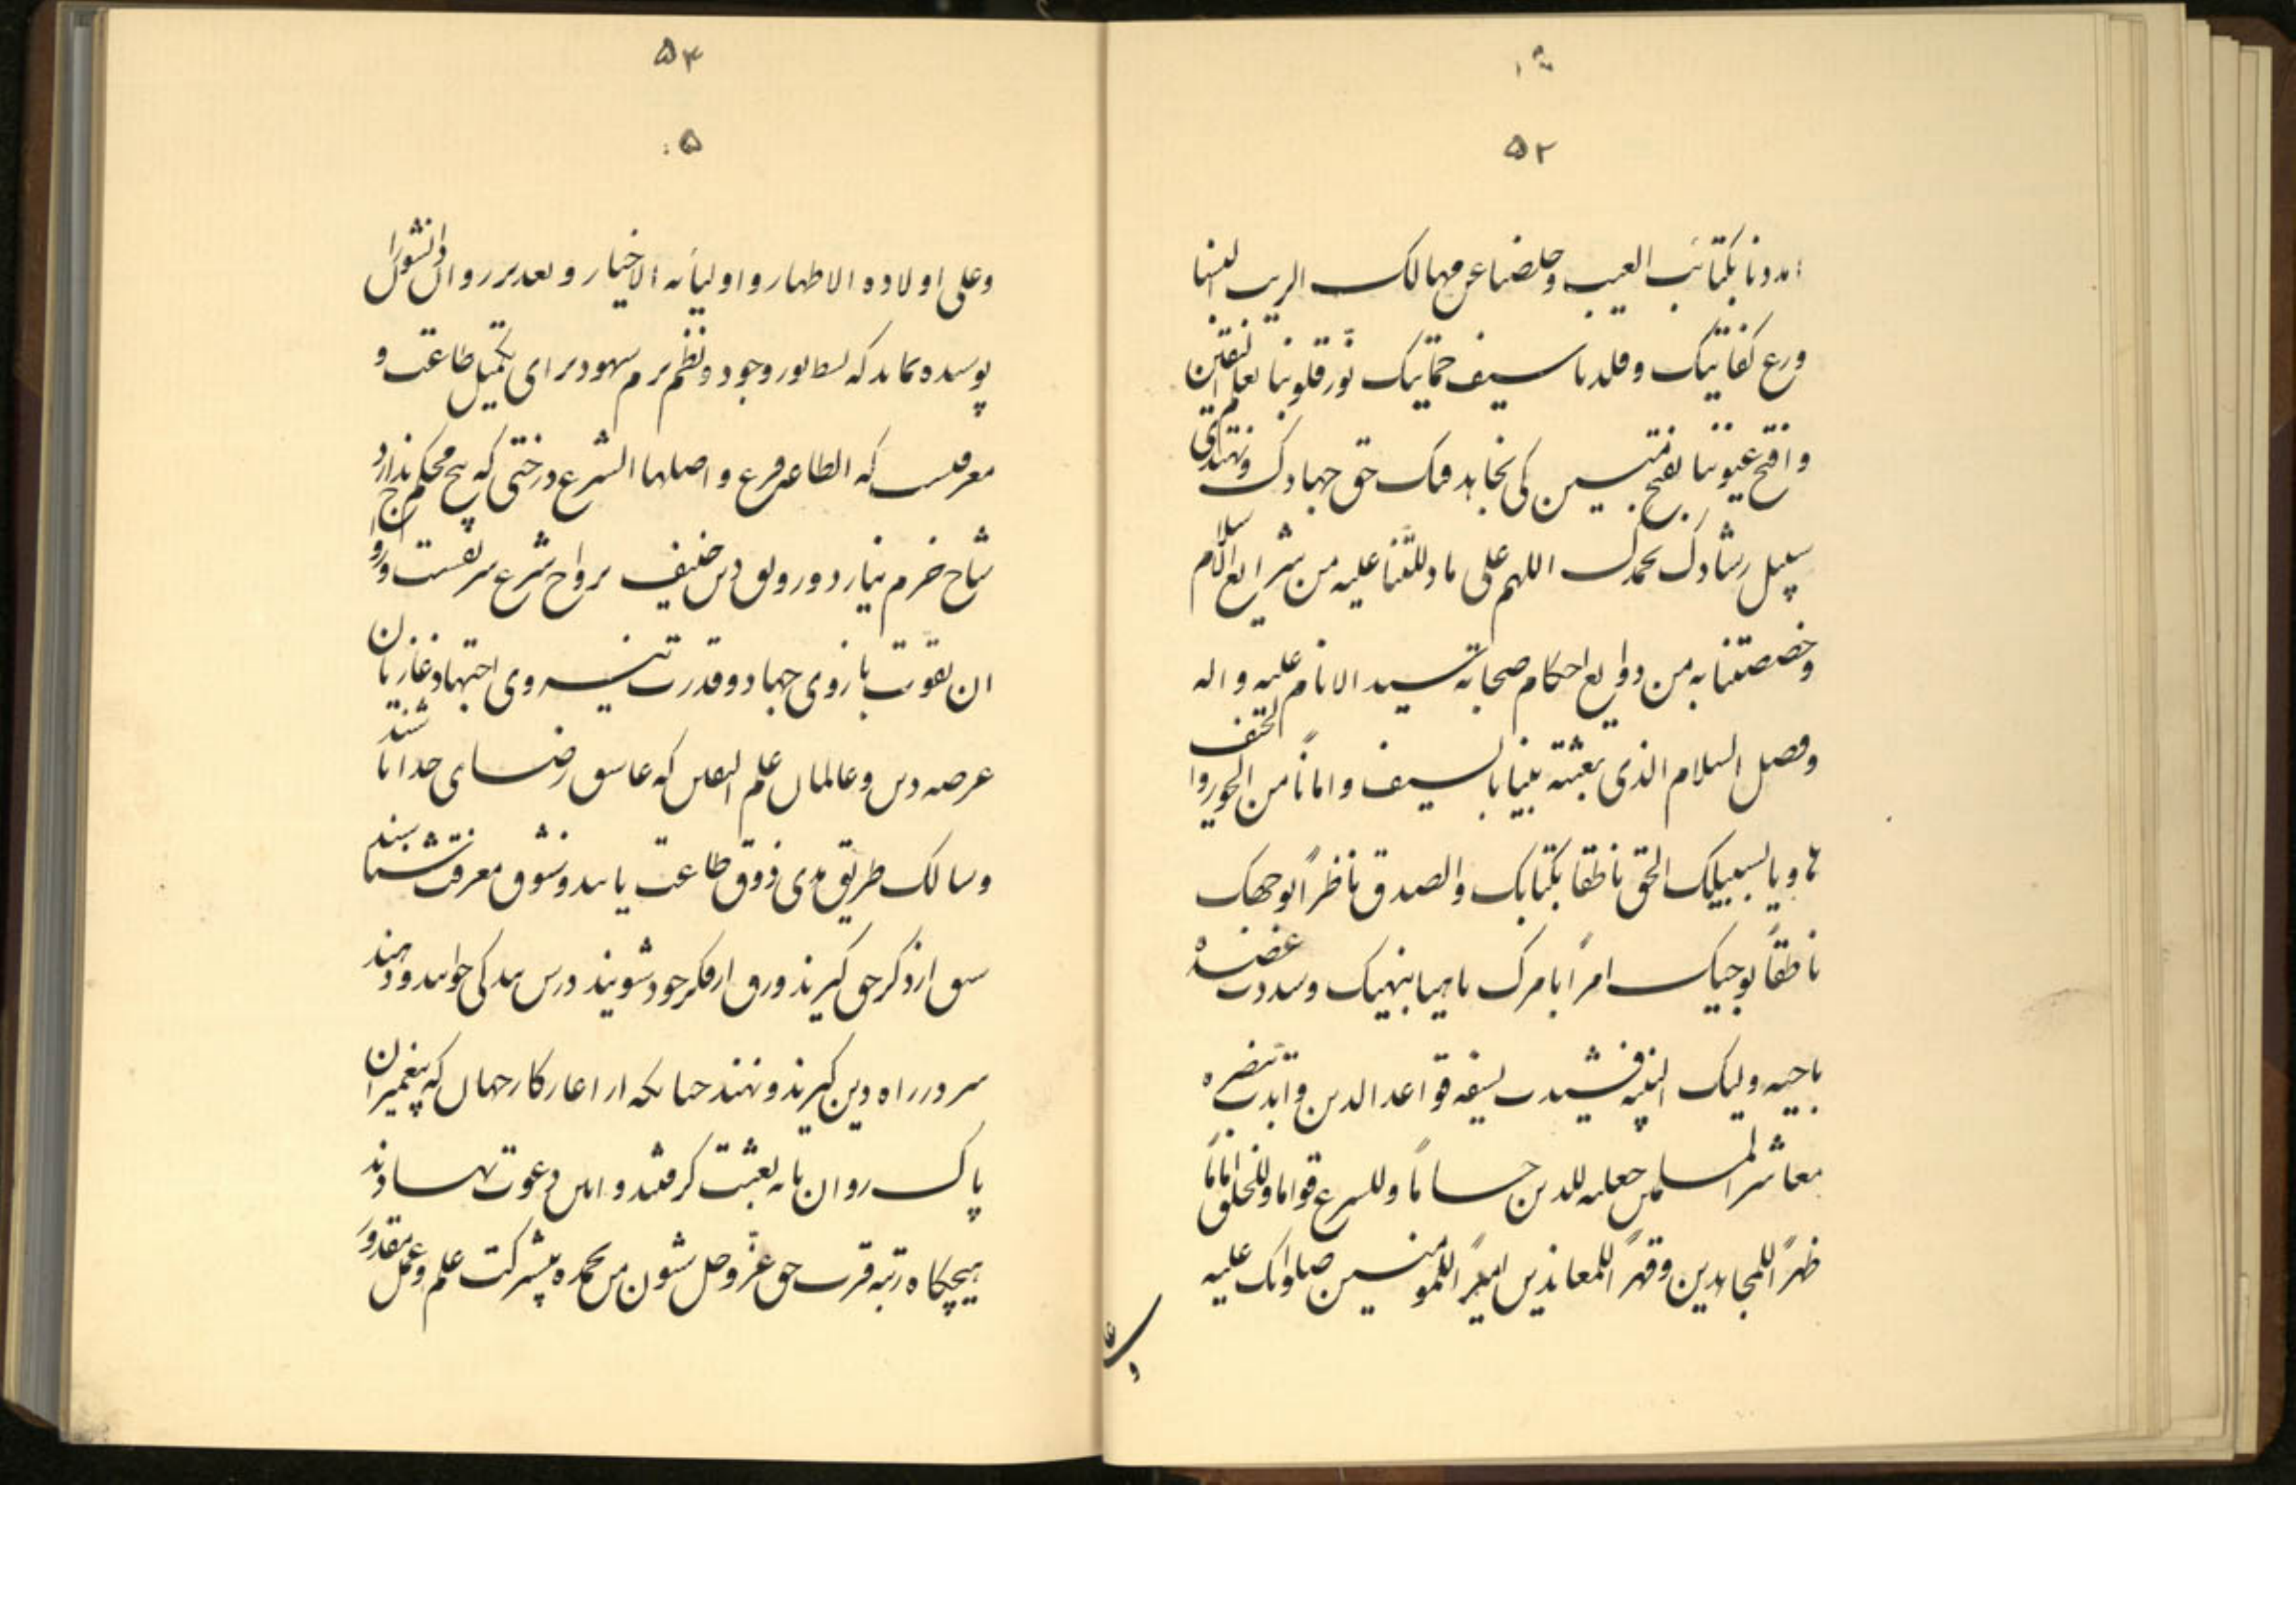 ۵۲
امددنا بکتائب الغیب و خلصنا عن مهالک الریب البسنا
درع کفایتک و قلدنا سیف حمایتک نور قلوبنا بعلم الیقین
و افتح عیوننا بفتح مبین کی نجاهد فیک حق جهادک و نهتدی
سبیل رشادک نحمدک اللهم علی ما دللتنا علیه من شرایع الاسلام
و خصصتنا به من ودایع احکام صحابه سید الانام علیه و اله
و فصل السلام الذی بعثته نبیا بالسیف و امانا من الجور و الحتف
هادیا لسبیلک الحق ناطقا بکتابک و الصدق ناظرا بوجهک
ناطقا بوحیک امرا بامرک ناهیا بنهیک و سددت عضده
باخیه ولیک النبیه فشیدت بسیفه قواعد الدین و ایدت بنصره
معاشر المسلمین جعلته للدین حساما و للشرع قواما و للخلق اماما
ظهرا للمجاهدین و قهرا للمعاندین امیرا للمومنین صلواتک علیه
۵۴
۵۰
و علی اولاده الاطهار و اولیائه الاخیار و بعد بر روان دانشوران
پوسیده نماند که سطور وجود و نظم بزم شهود برای تکمیل طاعت و
معرفتست که الطاعة فرع و اصلها الشرع درختی که بیخ محکم ندارد
شاخ خرم نیارد و رونق دین حنیف برواج شرع شریفست و رواج
ان بقوت بازوی جهاد و قدرت نیروی اجتهاد غازیان
عرصه دین و عالمان علم الیقین که عاشق رضای خدا باشند
و سالک طریق هدی ذوق طاعت یابند و شوق معرفت شناسند
سبق از ذکر حق گیرند ورق از فکر خود شویند درس بندگی خوانند و دهند
سر در راه دین گیرند و نهند چنانکه از اغاز کار جهان که پیغمبران
پاک روان بنا به بعثت گرفتند و ایین دعوت نهادند
هیچگاه رتبه قرب حق عز و جل شئون من نحمده بیشرکت علم و عمل مقدور